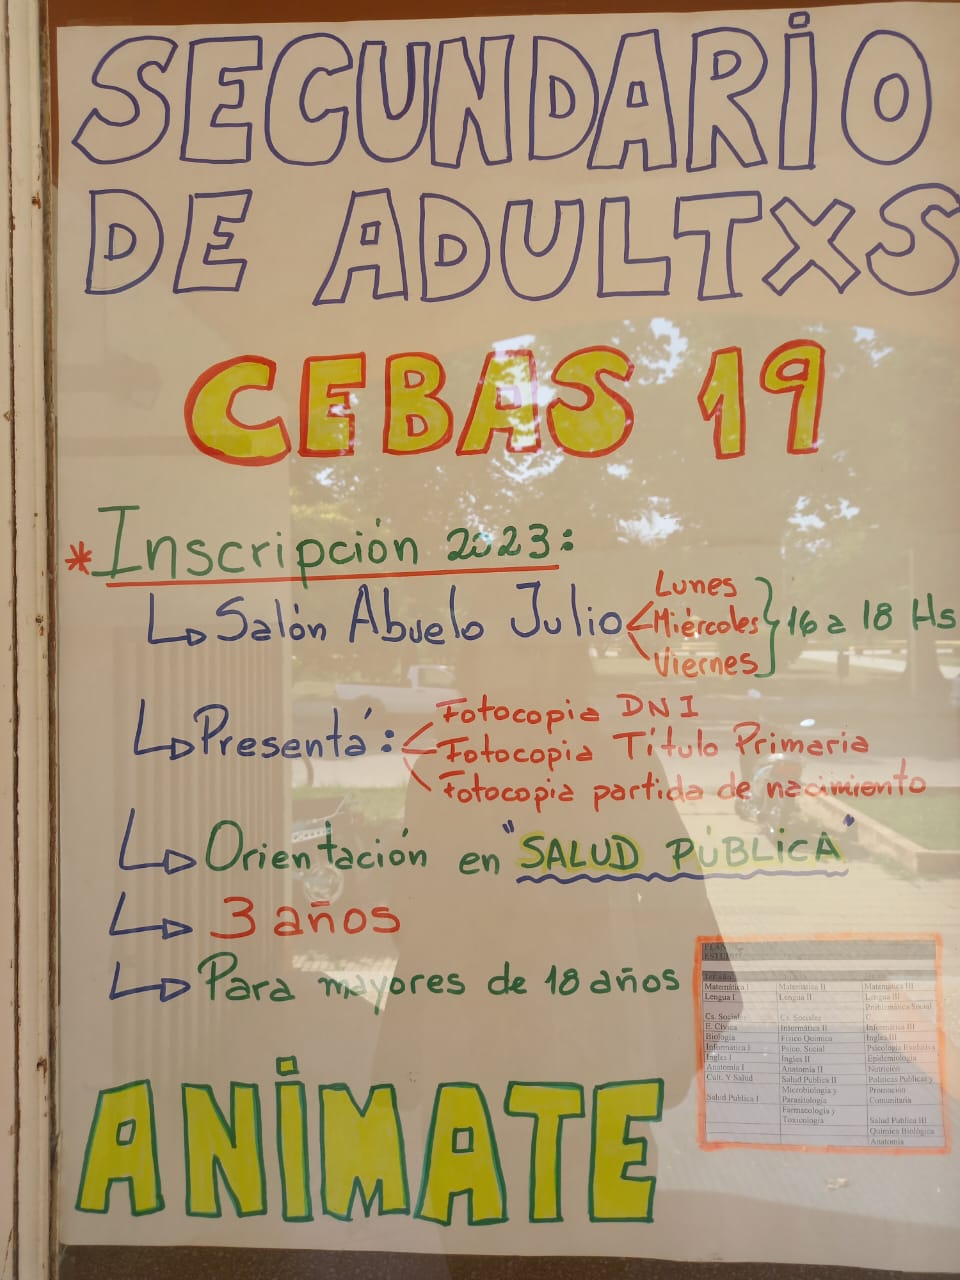 SECUNDARIO
DE ADULTXS
CEBAS 19
* Inscripción 2023:
Salón Abuelo Julio Lunes Miércoles Viernes 16 a 18 Hs
Presentá: Fotocopia DNI
Fotocopia Título Primaria
Fotocopia partida de nacimiento
Orientación en "SALUD PÚBLICA"
3 años
Para mayores de 18 años
ANIMATE
Matemática I Matemática II Matemática III
Lengua I Lengua II Lengua III
Problemática Social
Cs. Sociales Cs. Sociales C.
E. Cívica Informática II Informática III
Biología Físico Química Ingles III
Informática I Psico. Social Psicología Evolutiva
Ingles I Ingles II Epidemiología
Anatomía I Anatomía II Nutrición
Cult. Y Salud Salud Publica II Políticas Publicas y
Microbiología y Promoción
Salud Publica I Parasitología Comunitaria
Farmacología y
Toxicología Salud Publica III
Química Biológica
Anatomía